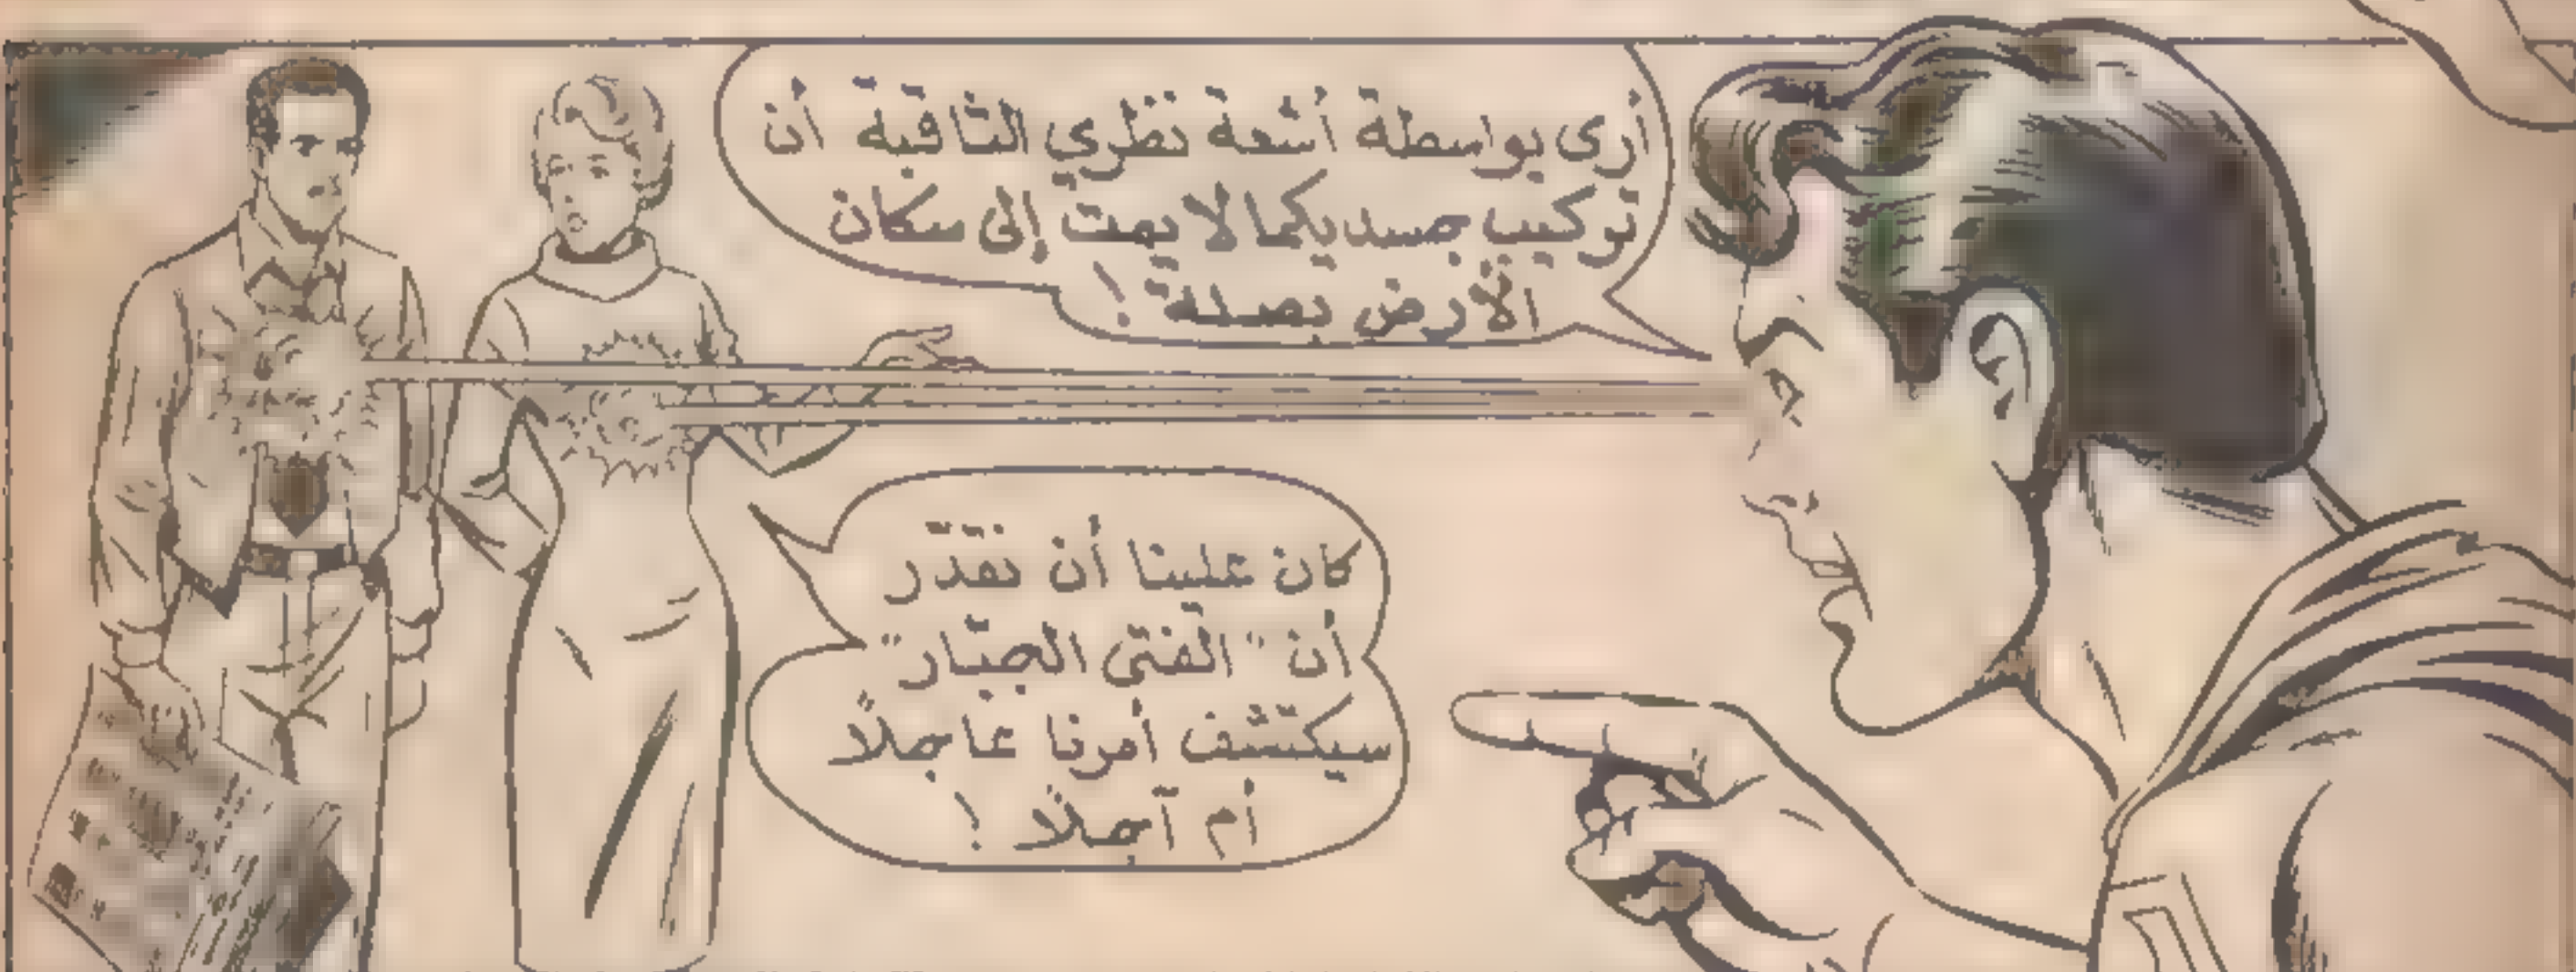 أرى بواسطة أشعة نظري الثاقبة أن
تركيب جسديكما لا يمت إلى سكان
الأرض بصلة !
كان علينا أن نقدّر
أن "الفتى الجبّار"
سيكتشف أمرنا عاجلاً
أم آجلاً !